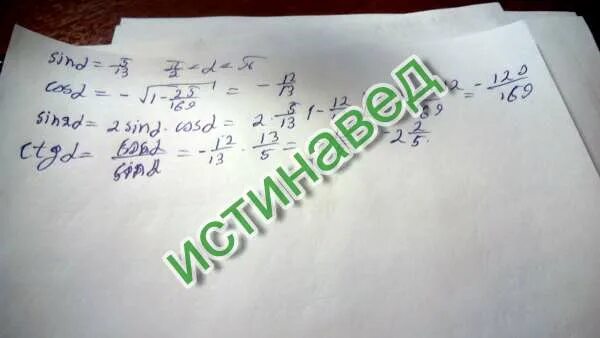 sinα = 5/13 π/2 < α < π
cosα = - √(1 - 25/169) = - 12/13
sin2α = 2 sinα · cosα = 2 · 5/13 (- 12/ 12/169 = - 120/169
ctgα = cosα/sinα = - 12/13 · 13/5 = - 2 2/5.
истинавед